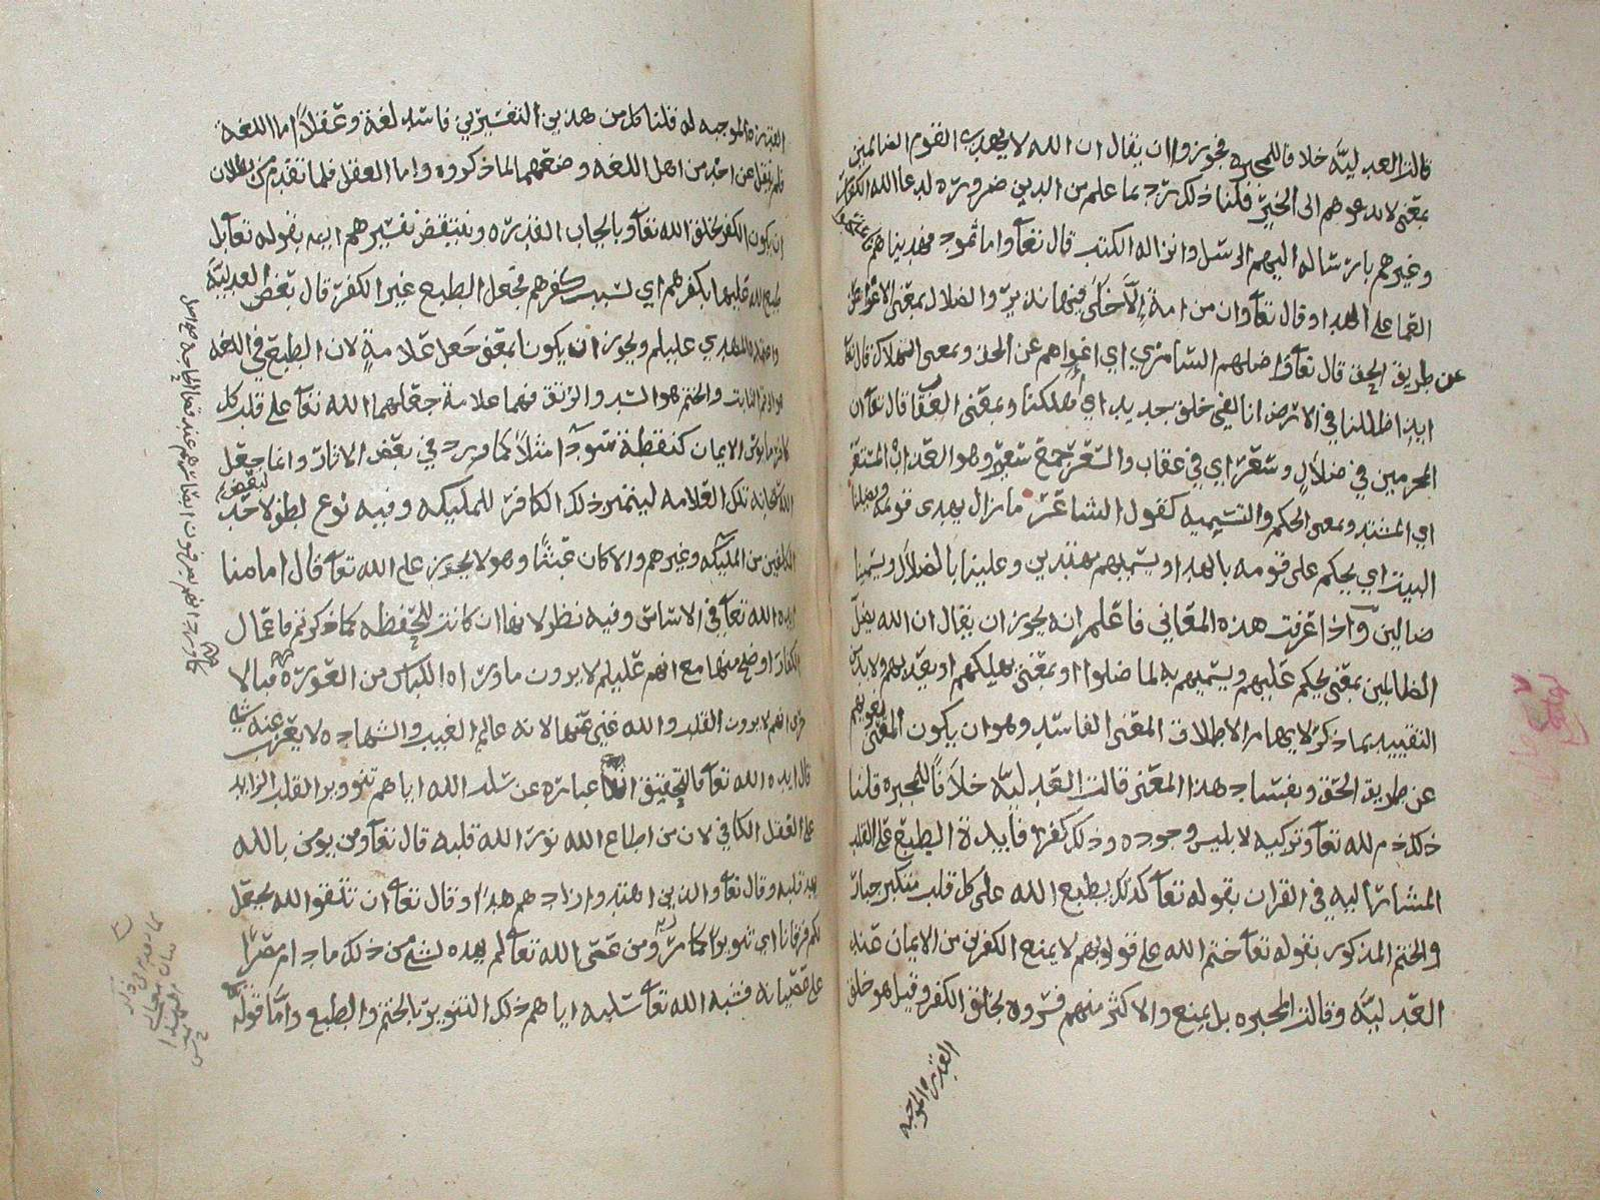 قالت العدليه خلافا للمجبره فيجوزوا ان يقال ان الله لا يهدي القوم الظالمين
بمعنى لا يدعوهم الى الخير قلنا ذلك رد بما علم من الدين ضرورة لدعا الله الكفار
وغيرهم بارساله اليهم الرسل وانزاله الكتب قال تعالى واما ثمود فهديناهم فاستحبوا
العما على الهدا وقال تعالى وان من امة الا خلا فيها نذير والضلال بمعنى الاغواء
عن طريق الحق قال تعالى واضلهم السامري اي اغواهم عن الحق وبمعنى الهلاك قال تعالى
ائذا ظللنا في الارض انا لفي خلق جديد اي هلكنا وبمعنى العقاب قال تعالى ان
المجرمين في ضلال وسعر اي في عقاب والسعر جمع سعير وهو العذاب المستعر
اي المشتد وبمعنى الحكم والتسميه كقول الشاعر ما زال يهدي قومه ويضلنا
البيت اي يحكم على قومه بالهدا ويسميهم مهتدين وعلينا بالضلال ويسمينا
ضالين واذا عرفت هذه المعاني فاعلم انه يجوز ان يقال ان الله يضل
الظالمين بمعنى يحكم عليهم ويسميهم به لما ضلوا او بمعنى يهلكهم او يعذبهم ولا بد من
التقييد بما ذكر لايهام الاطلاق المعنى الفاسد وهو ان يكون المعنى يغويهم
عن طريق الحق وبفساد هذا المعنى قالت العدليه خلافا للمجبره قلنا
ذلك ذم لله تعالى وتزكيه لابليس وجنوده وذلك كفر فايدة الطبع على القلب
المشار اليه في القران بقوله تعالى كذلك يطبع الله على كل قلب متكبر جبار
والختم المذكور بقوله تعالى ختم الله على قلوبهم لا يمنع الكفرين من الايمان عند
العدليه وقالت المجبره بل يمنع والاكثر منهم فسروه بخلق الكفر وقيل هو خلق
القدره الموجبه
القدره الموجبه له قلنا كل من هذين التفسيرين فاسد لغة وعقلا اما اللغة
فلم ينقل عن احد من اهل اللغه وضعهما لما ذكروه واما العقل فلما تقدم من بطلان
ان يكون الكفر بخلق الله تعالى وبايجاب القدره وينتقض تفسيرهم ايضا بقوله تعالى بل
طبع الله عليها بكفرهم اي بسبب كفرهم فجعل الطبع غير الكفر قال بعض العدليه
المهدي عليلم ويجوز ان يكونا بمعنى جعل علامة لان الطبع في اللغه
والختم هو السد والوثق فهما علامة جعلهما الله تعالى على قلب كل
الايمان كنقطة سودا مثلا كما ورد في بعض الاثار وانما جعل
الله سبحانه تلك العلامه ليتميز ذلك الكافر للمليكه وفيه نوع لطف لاحد
المكلفين من المليكه وغيرهم والا كان عبثا وهو لا يجوز على الله تعالى قال امامنا
ايده الله تعالى في الاساس وفيه نظر لانها ان كانت للحفظه كما ذكرتم فاعمال
الكفار اوضح منها مع انهم عليلم لا يرون ما وراه الكباس من العورة
انهم لا يرون القلب والله غني عنها لانه عالم الغيب والشهاده لا يعزب عنه شيء
قال ايده الله تعالى فالتحقيق انها عبارة عن سلب الله اياهم تنوير القلب الزايد
على العقل الكافي لان من اطاع الله نور الله قلبه قال تعالى ومن يومن بالله
يهد قلبه وقال تعالى والذين اهتدوا زادهم هدا وقال تعالى ان تتقوا الله يجعل
لكم فرقانا اي تنويرا كما مر ومن عصى الله تعالى لم يمده بشيء من ذلك ما دام مصرا
على عصيانه فشبه الله تعالى سلبه اياهم ذلك التنوير بالختم والطبع واما قوله